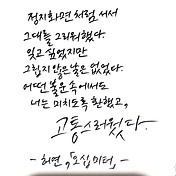 정지화면처럼 서서
그대를 그리워했다.
잊고 싶었지만
그립지 않은 날은 없었다.
어떤 불운 속에서도
너는 미치도록 환했고,
고통스러웠다.
- 허연, 「오십 미터」 -